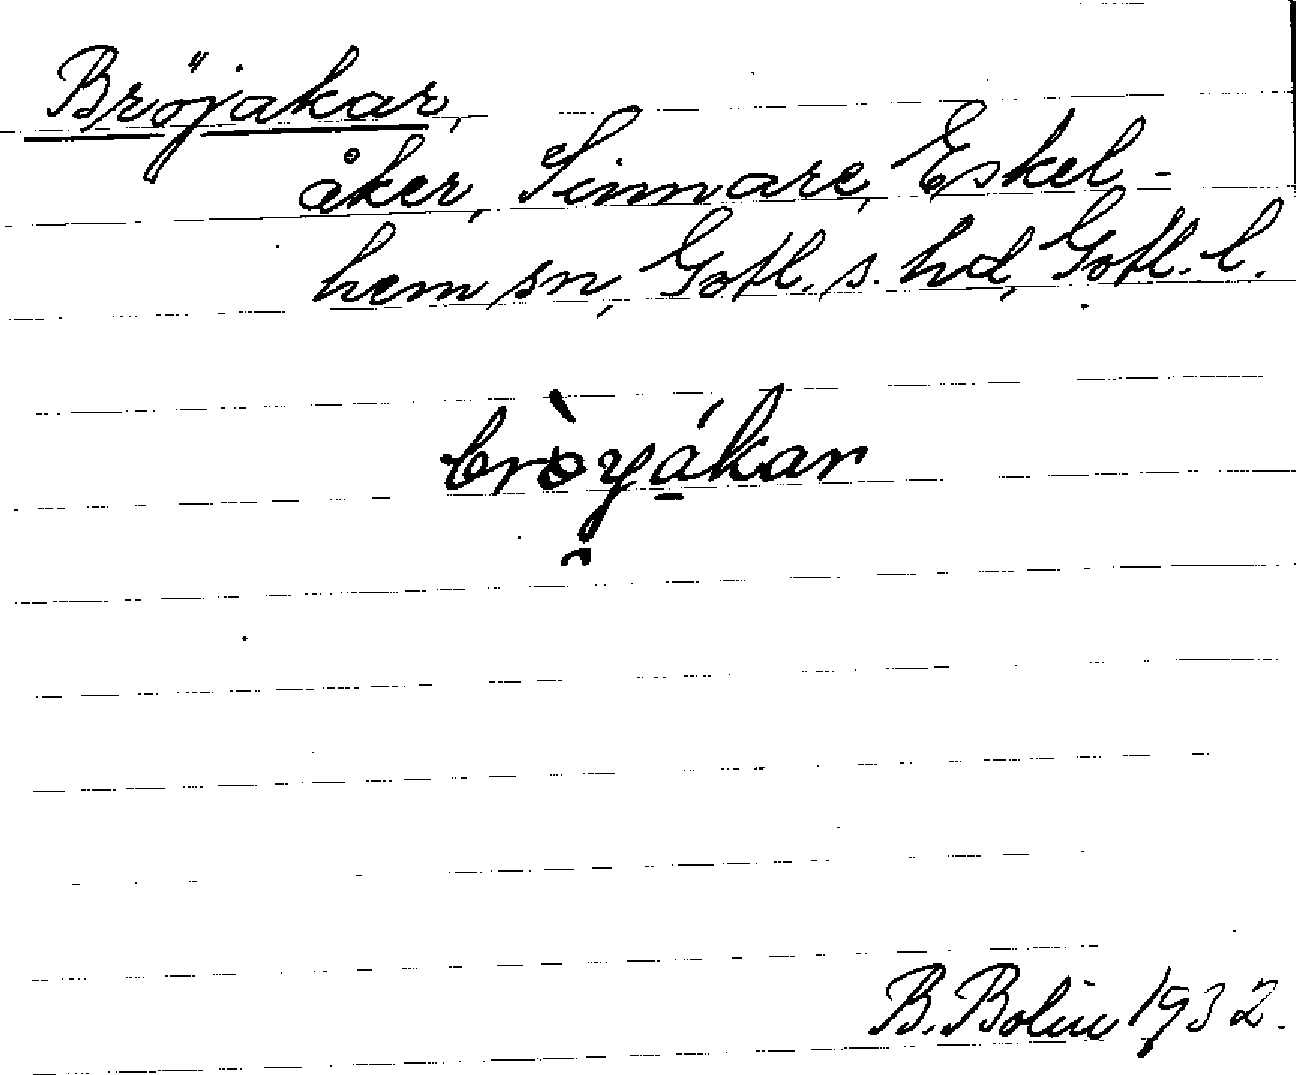 Bröjakar,
åker, Sinnare, Eskel-
hem sn, Gotl. s. hd, Gotl. l.
bròyákar
B. Bolin 1932.